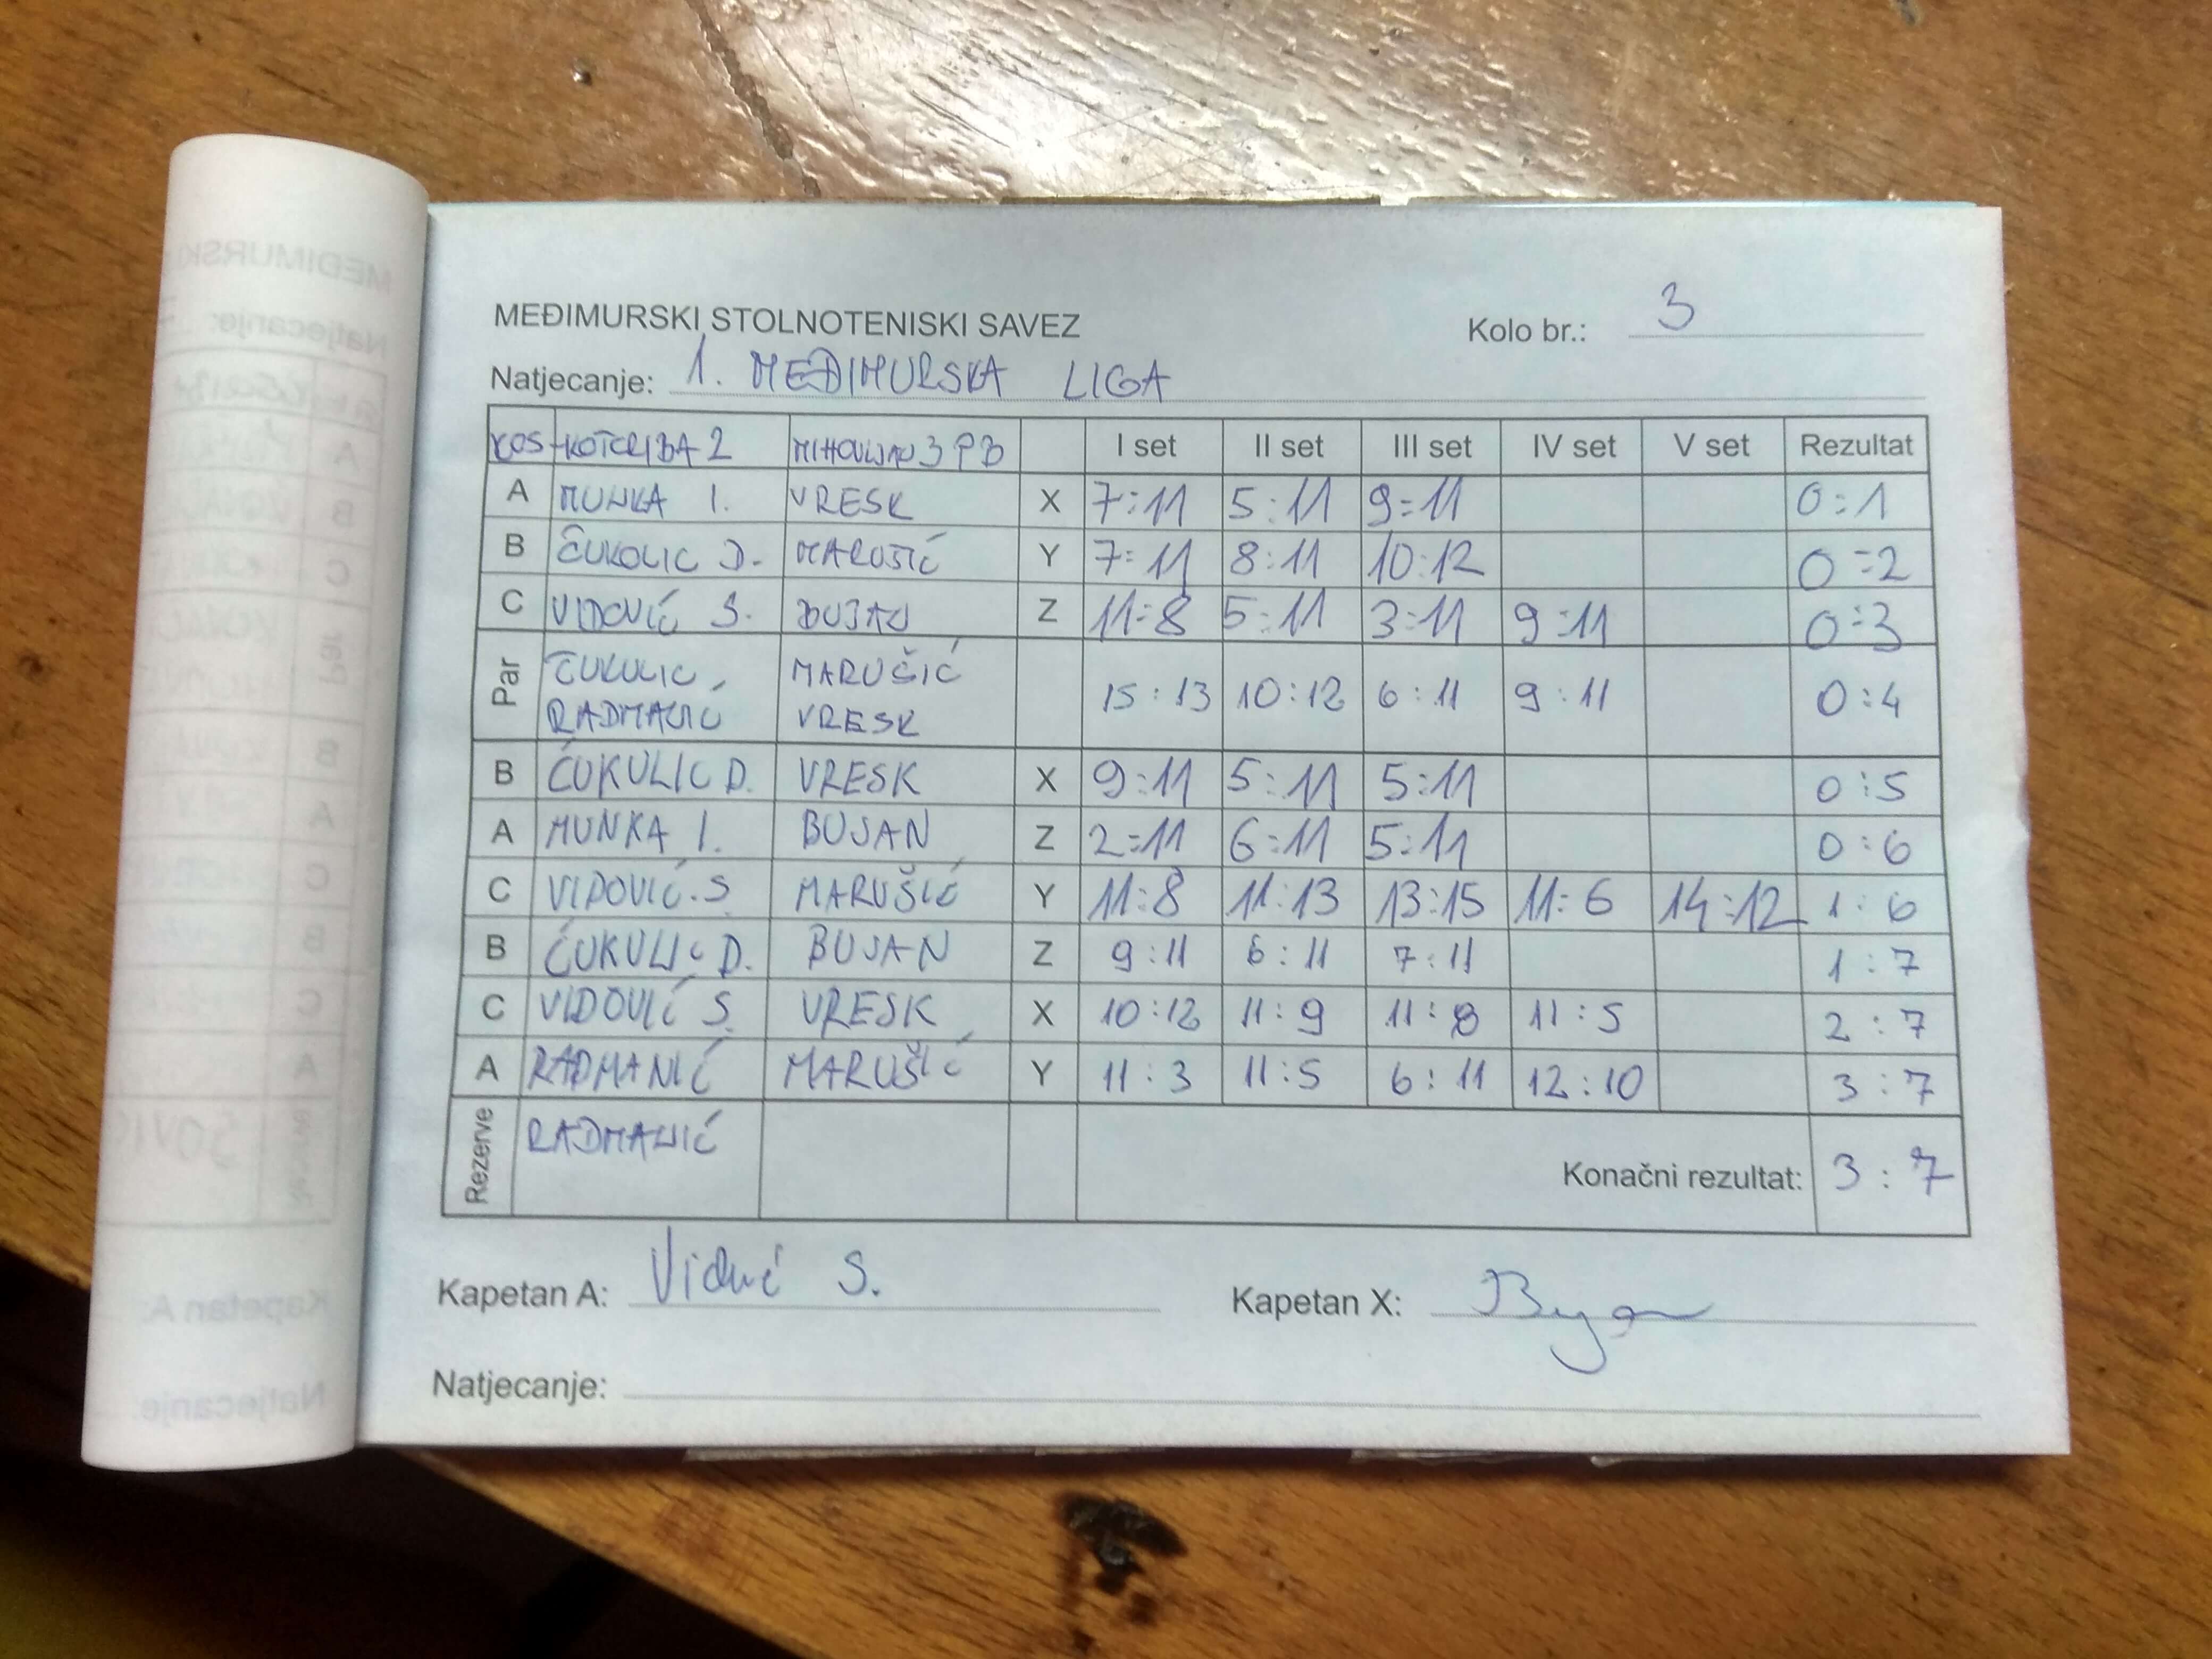 MEĐIMURSKI STOLNOTENISKI SAVEZ
Kolo br.: 3
Natjecanje: 1. MEĐIMURSKA LIGA
KOTORIBA 2 MIHOVLJAN 3 PB I set II set III set IV set V set Rezultat
A MUNKA I. VRESK X 7:11 5:11 9=11 0:1
B ČUKOLIC D. MARUŠIĆ Y 7=11 8:11 10:12 0=2
C VIDOVIĆ S. BUJAN Z 11=8 5:11 3:11 9:11 0=3
Par ČUKULIC MARUŠIĆ 15:13 10:12 6:11 9:11 0:4
RADMANIĆ VRESK
B ČUKULIC D. VRESK X 9:11 5:11 5:11 0:5
A MUNKA I. BUJAN Z 2=11 6=11 5:11 0:6
C VIDOVIĆ.S. MARUŠIĆ Y 11:8 11:13 13:15 11:6 14:12 1:6
B ČUKULIC D. BUJAN Z 9:11 6:11 7:11 1:7
C VIDOVIĆ S. VRESK X 10:12 11:9 11:8 11:5 2:7
A RADMANIĆ MARUŠIĆ Y 11:3 11:5 6:11 12:10 3:7
Rezerve RADMANIĆ
Konačni rezultat: 3:7
Kapetan A: Vidović S. Kapetan X:
Natjecanje: